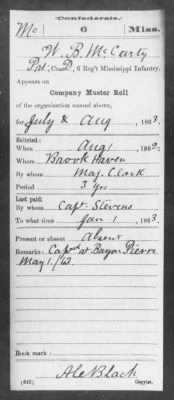 Confederate.
Mc 6 Miss.
W. B. McCarty
Pvt, Co. D, 6 Reg't Mississippi Infantry.
Appears on
Company Muster Roll
of the organization named above,
for July & Aug, 1863.
Enlisted:
When Aug 1, 186
Where Brook Haven
By whom Maj. Clark
Period 3 yrs
Last paid:
By whom Capt. Stevens
To what time Jan 1, 1863.
Present or absent Absent
Remarks: Capd at Bayou Pierre
May 1./63.
Book mark:
Ale Black
(642) Copyist.